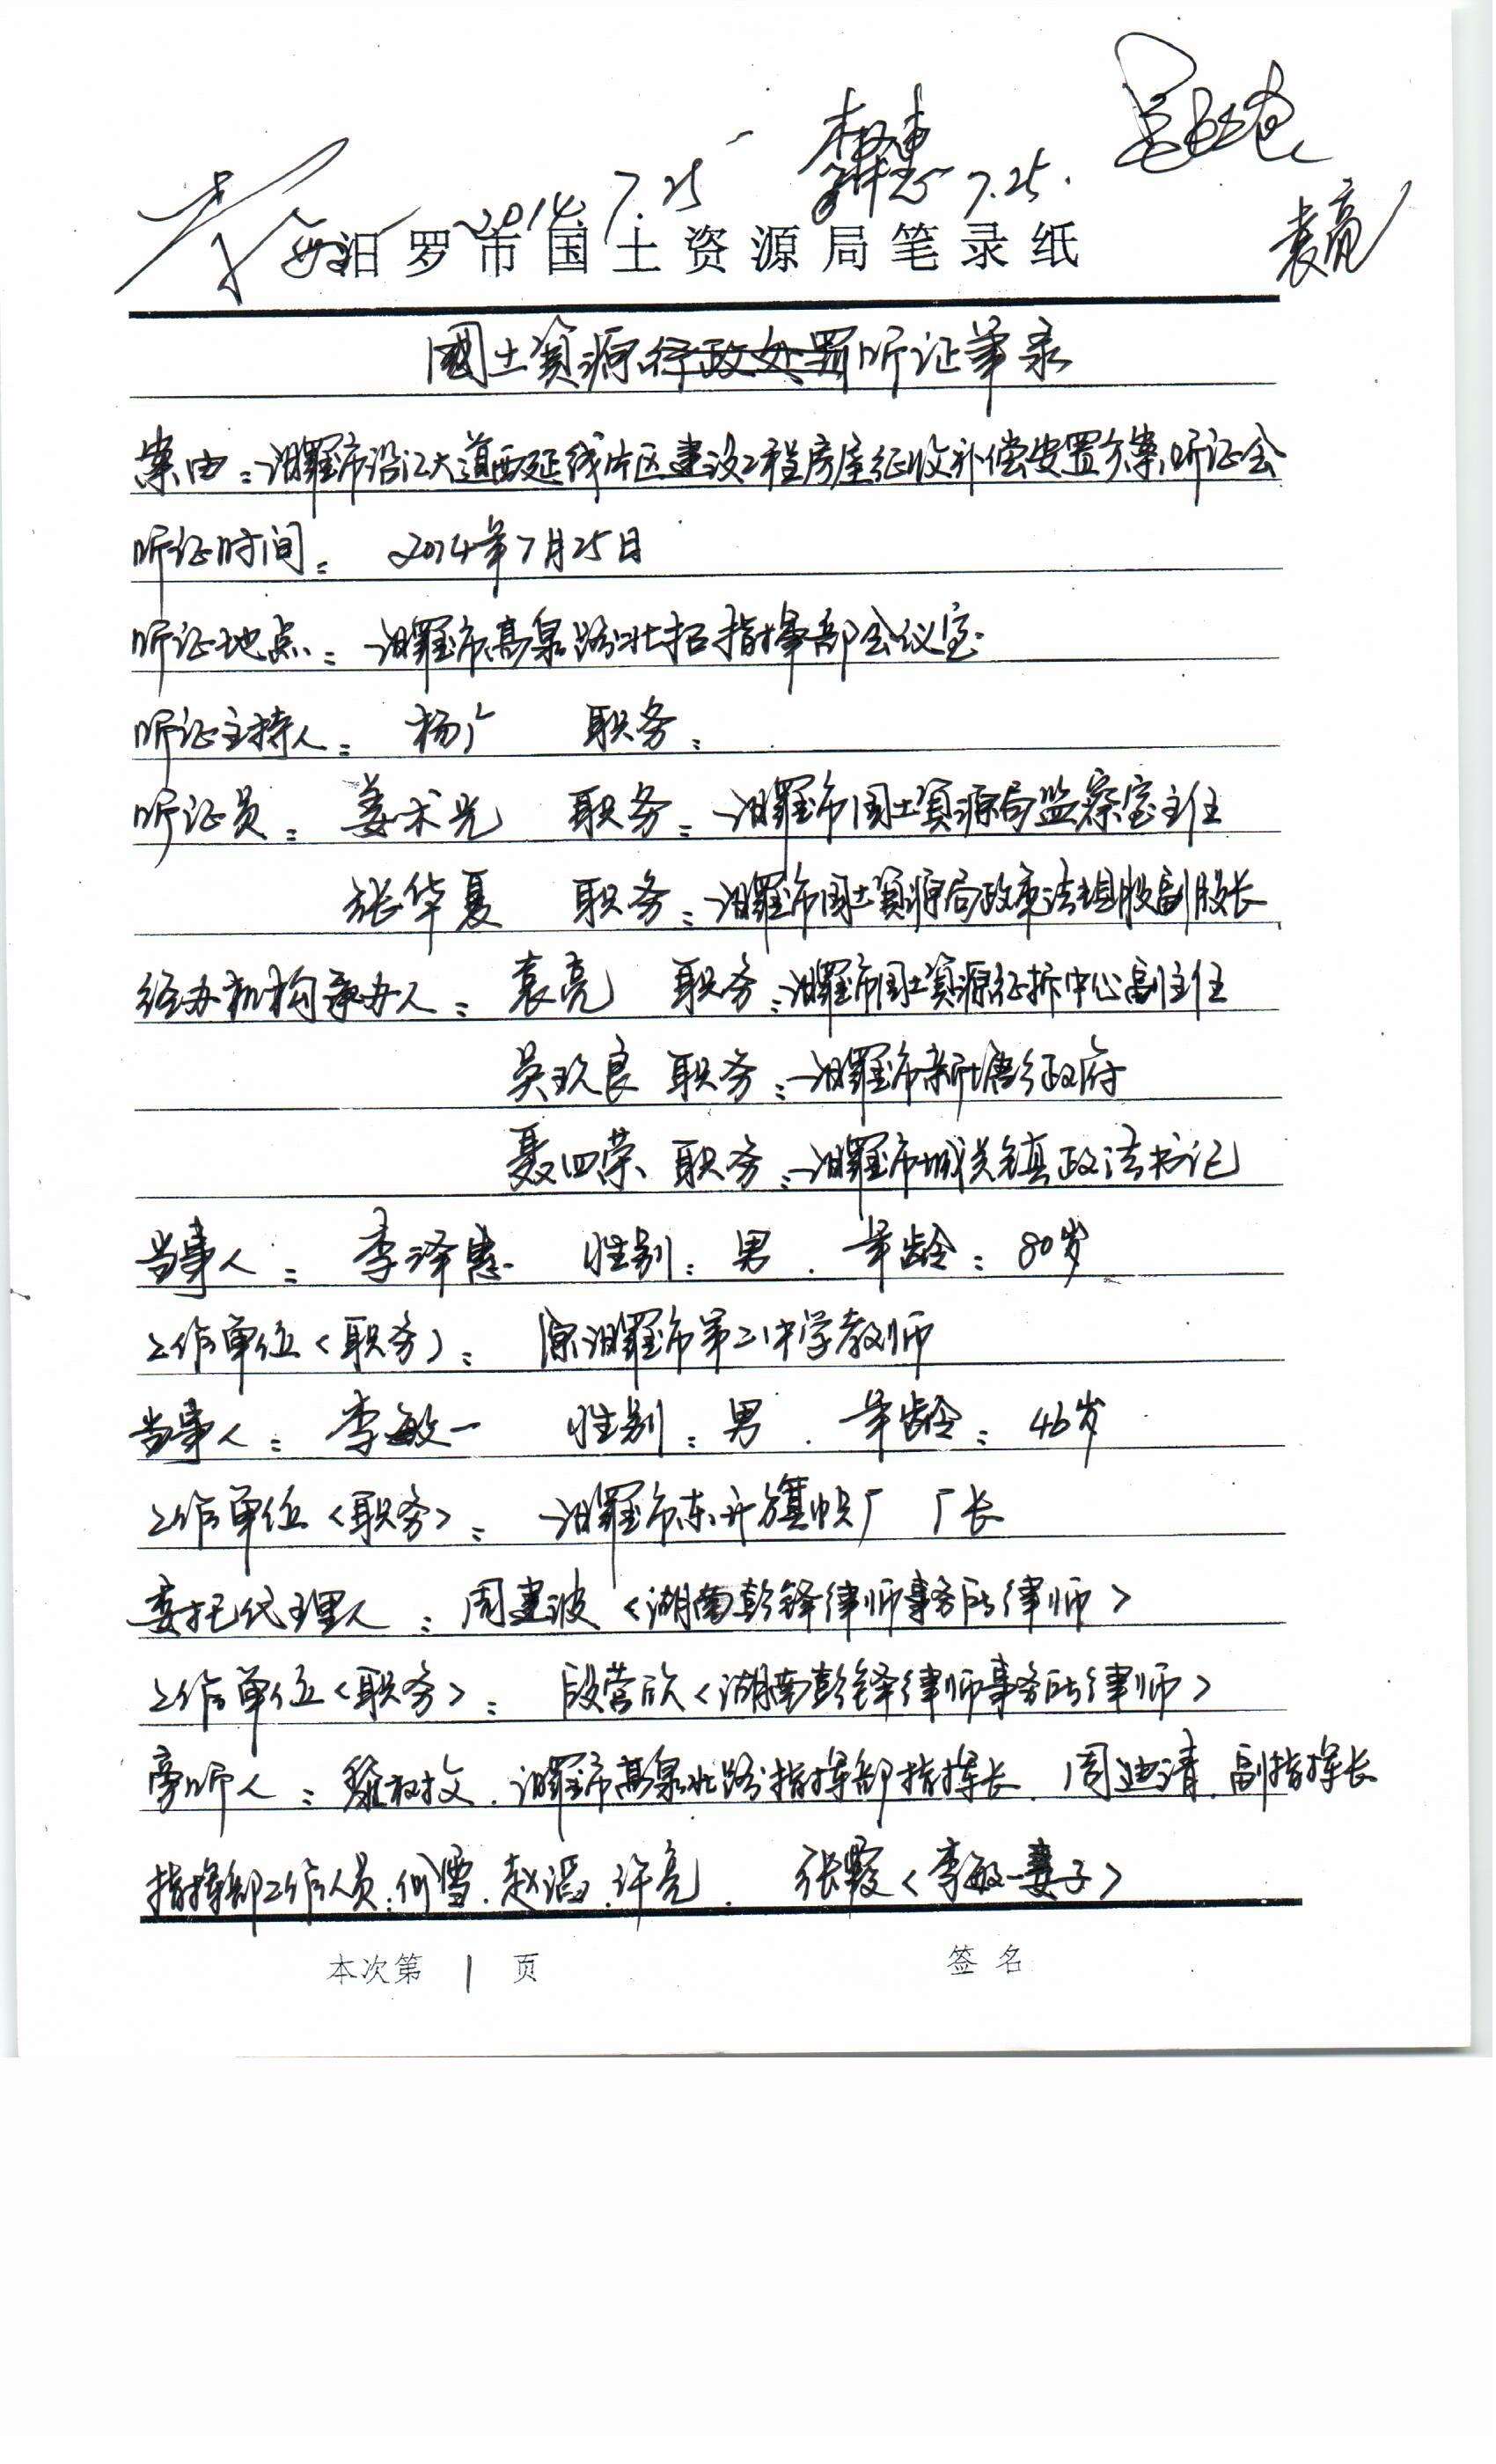 2014.7.25
7.25.
袁亮
汨罗市国土资源局笔录纸
國土資源行政处罚听证笔录
案由：汨羅市沿江大道西延线片区建设工程房屋征收补偿安置方案听证会
听证时间： 2014年7月25日
听证地点：汨羅市高泉路北招指挥部会议室
听证主持人： 杨广 职务：
听证员：姜术光 职务：汨羅市国土資源局监察室主任
张华夏 职务：汨羅市国土資源局政策法规股副股长
经办机构承办人：袁亮 职务：汨羅市国土資源征拆中心副主任
吴玖良 职务：汨羅市新塘乡政府
聂四荣 职务：汨羅市城关镇政法书记
当事人：李泽惠 性别：男. 年龄：80岁
工作单位〈职务〉： 原汨羅市第二中学教师
当事人：李敏一 性别：男. 年龄：46岁
工作单位〈职务〉： 汨羅市东升旗帜厂 厂长
委托代理人：周建波〈湖南彭锋律师事务所律师〉
工作单位〈职务〉： 段营欣〈湖南彭锋律师事务所律师〉
旁听人：汨羅市高泉北路指挥部指挥长. 周迪清.副指挥长
指挥部工作人员：何雪.赵滔.许亮. 张霞〈李敏一妻子〉
本次第 1 页 签名